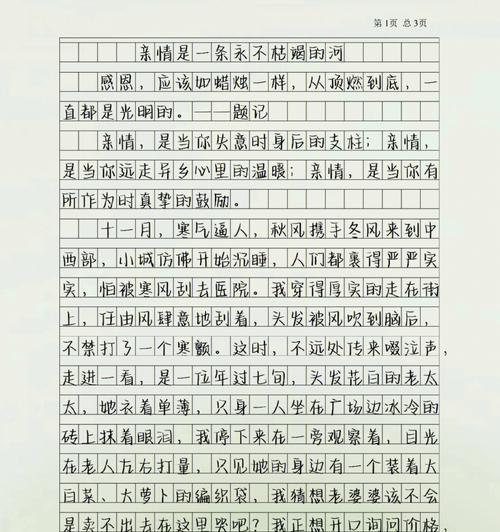 第1页 总3页
亲情是一条永不枯竭的河
感恩，应该如蜡烛一样，从顶燃到底，一
直都是光明的。——题记
亲情，是当你失意时身后的支柱；亲情，
是当你远走异乡心里的温暖；亲情，是当你有
所作为时真挚的鼓励。
十一月，寒气逼人，秋风携手冬风来到中
西部，小城仿佛开始沉睡，人们都裹得严严实
实，怕被寒风刮去医院。我穿得厚实的走在街
上，任由风肆意地刮着，头发被风吹到脑后，
不禁打了一个寒颤。这时，不远处传来啜泣声，
走进一看，是一位年过七旬，头发花白的老太
太，她衣着单薄，只身一人坐在广场边冰冷的
砖上抹着眼泪，我停下来在一旁观察着，目光
在老人左右打量，只见她的身边有一个装着大
白菜、大萝卜的编织袋，我猜想老婆婆该不会
是卖不出去在这里哭吧？我正想开口询问价格，